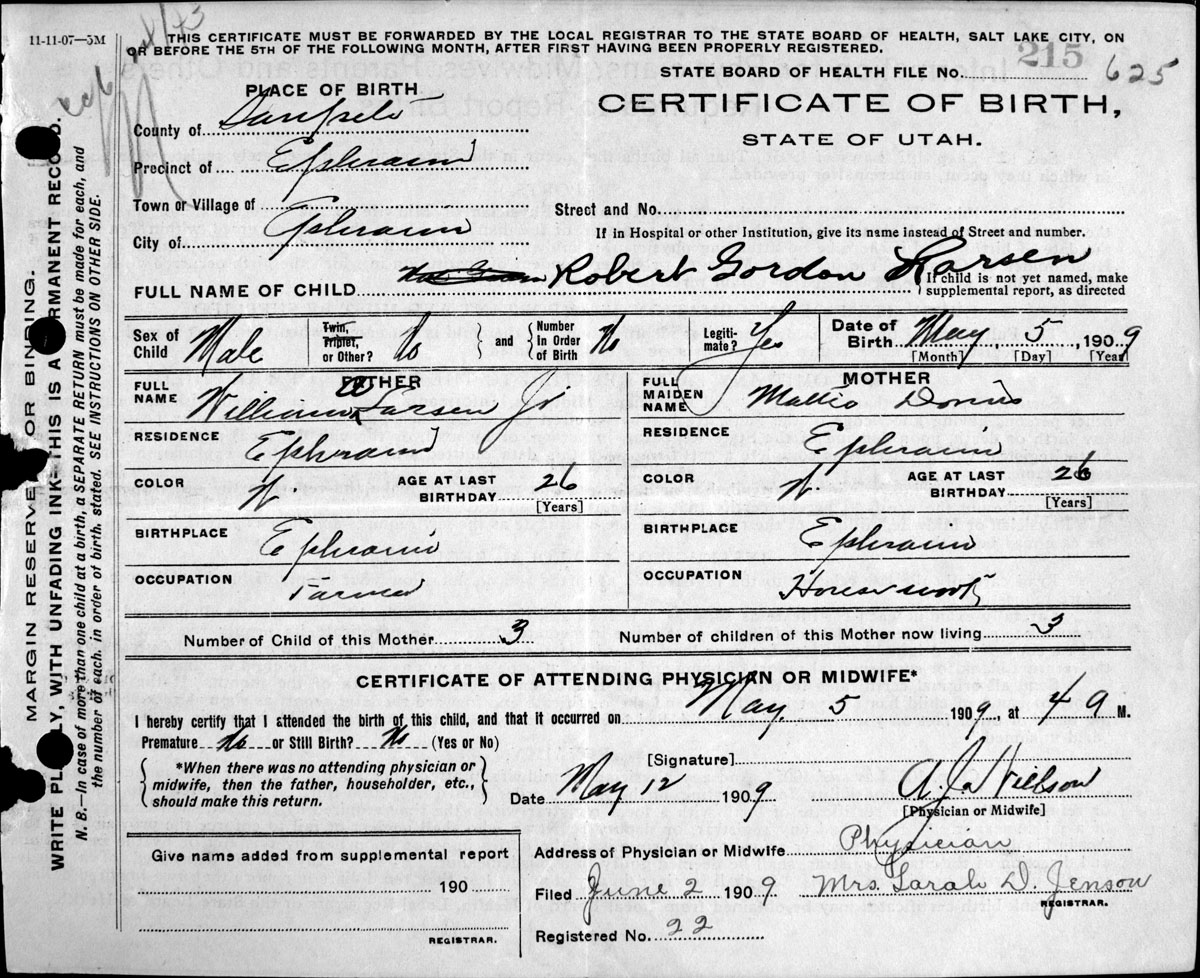 11-11-07—3M
THIS CERTIFICATE MUST BE FORWARDED BY THE LOCAL REGISTRAR TO THE STATE BOARD OF HEALTH, SALT LAKE CITY, ON
OR BEFORE THE 5TH OF THE FOLLOWING MONTH, AFTER FIRST HAVING BEEN PROPERLY REGISTERED.
215
STATE BOARD OF HEALTH FILE No. 625
PLACE OF BIRTH
CERTIFICATE OF BIRTH,
STATE OF UTAH.
County of Sanpete
Precinct of Ephraim
Town or Village of
Street and No.
City of Ephraim
If in Hospital or other Institution, give its name instead of Street and number.
FULL NAME OF CHILD Robert Gordon Larsen
If child is not yet named, make
supplemental report, as directed
Sex of Child Male
Twin, Triplet, or Other? No
and Number In Order of Birth No
Legiti-mate? Yes
Date of Birth May 5, 1909
[Month] [Day] [Year]
FATHER
FULL NAME William Larsen Jr
RESIDENCE Ephraim
COLOR W
AGE AT LAST BIRTHDAY 26
[Years]
BIRTHPLACE Ephraim
OCCUPATION Farmer
MOTHER
FULL MAIDEN NAME Mattie
RESIDENCE Ephraim
COLOR W
AGE AT LAST BIRTHDAY 26
[Years]
BIRTHPLACE Ephraim
OCCUPATION Housework
Number of Child of this Mother 3
Number of children of this Mother now living 3
CERTIFICATE OF ATTENDING PHYSICIAN OR MIDWIFE*
I hereby certify that I attended the birth of this child, and that it occurred on May, 5 1909, at 4 9 M.
Premature No or Still Birth? No (Yes or No)
*When there was no attending physician or
midwife, then the father, householder, etc.,
should make this return.
[Signature]
Date May 12 1909
A.
[Physician or Midwife]
Give name added from supplemental report
190
REGISTRAR.
Address of Physician or Midwife Physician
Filed June 2 1909 Mrs. Sarah D. Jenson
REGISTRAR.
Registered No. 22
MARGIN RESERVED FOR BINDING.
WRITE PLAINLY, WITH UNFADING INK—THIS IS A PERMANENT RECORD.
N. B.—In case of more than one child at a birth, a SEPARATE RETURN must be made for each, and
the number of each, in order of birth, stated. SEE INSTRUCTIONS ON OTHER SIDE.